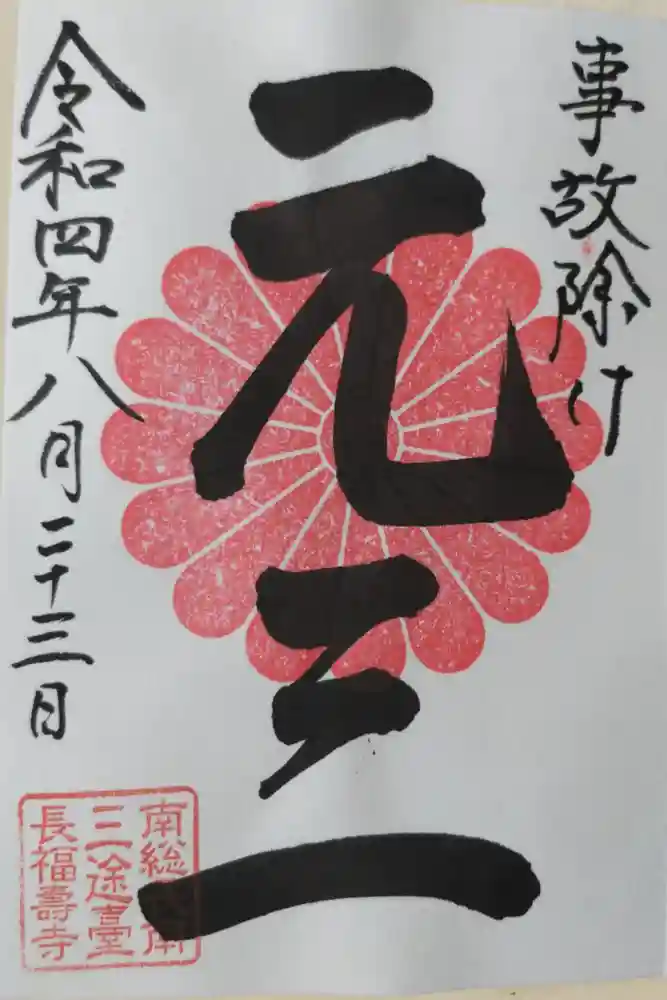 事故除け
元三
令和四年八月二十三日
南総長南
三途臺
長福壽寺